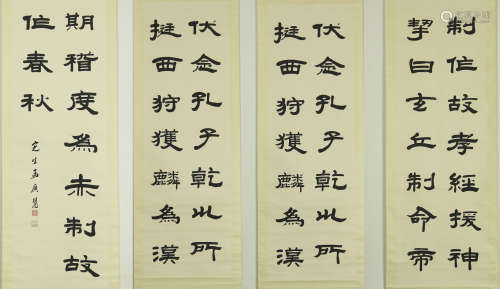 制作故孝經援神
挈曰玄丘制命帝
伏念孔子乾巛所
挺西狩獲麟為漢
伏念孔子乾巛所
挺西狩獲麟為漢
期稽度為赤制故
作春秋
定生孟廣慧